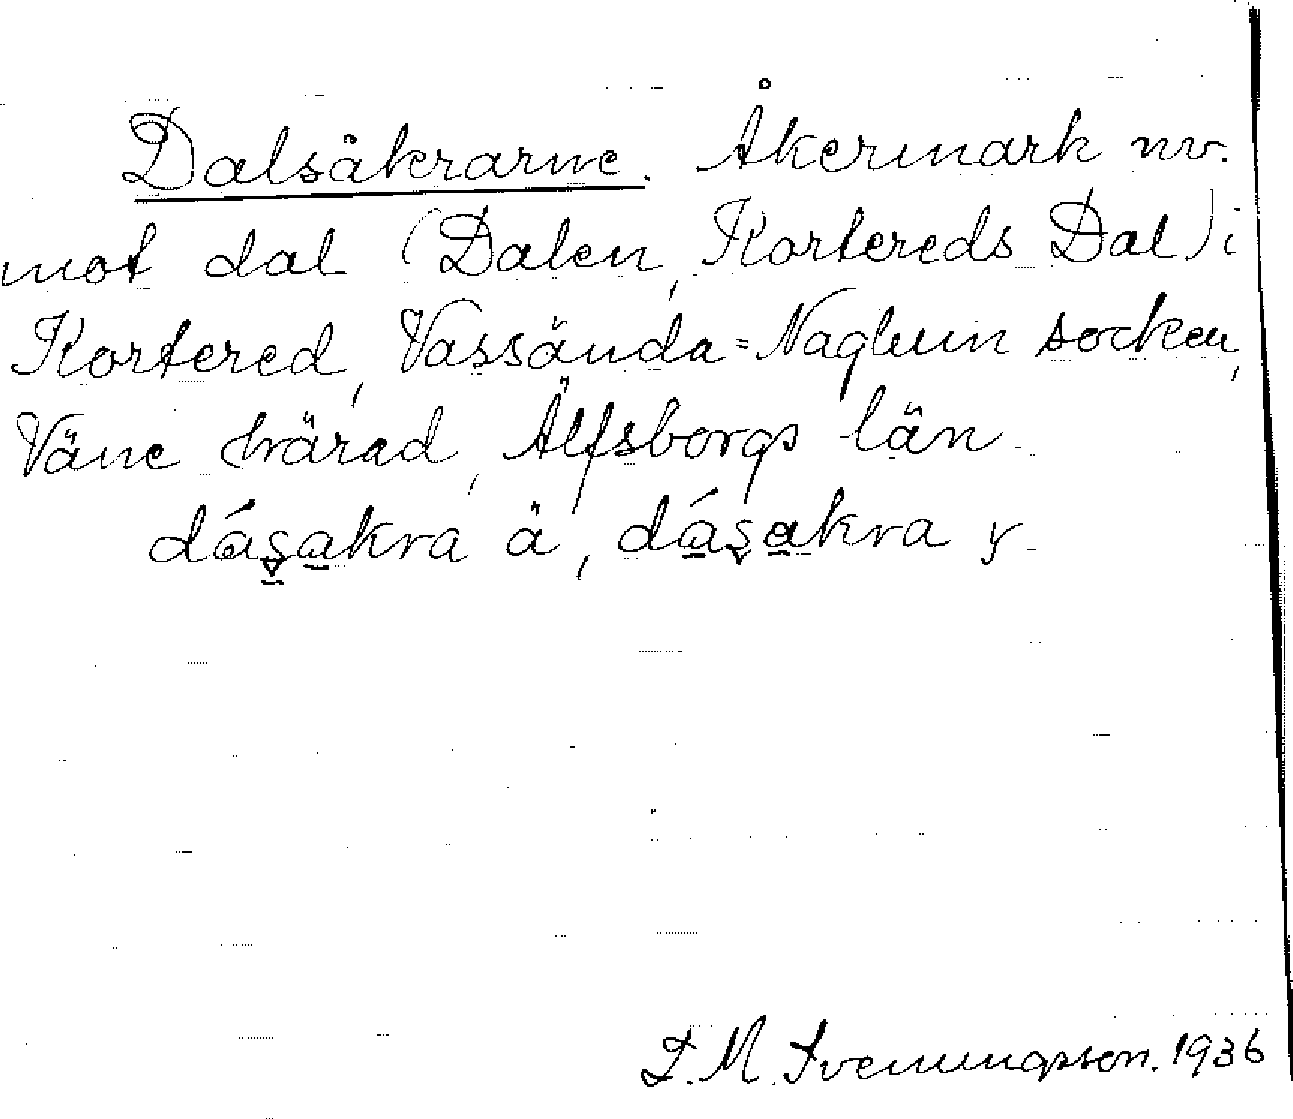 Dalsåkrarne. Åkermark nv.
mot dal (Dalen, Kortereds Dal) i
Kortered, Vassända=Naglum socken,
Väne härad, Älfsborgs län.
dásakra ä, dásakra y.
I. M. Svenungsson. 1936